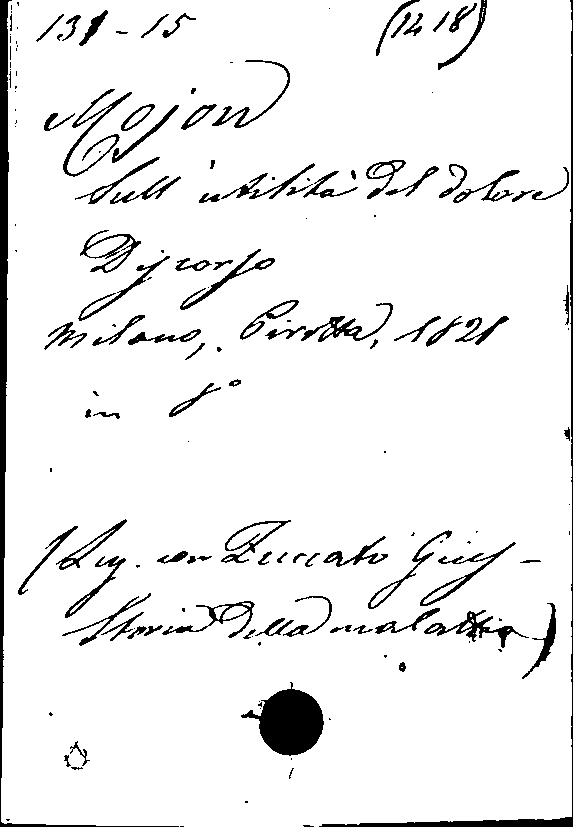 131-15 (1418)
Mojon
Sull'utilità del dolore
Discorso
Milano, Pirotta, 1821
in 8°
(Leg. con Zuccato Gius-
Storia della malattia)